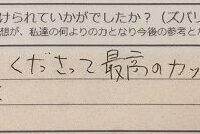 けられていかがでしたか？（ズバリ
想が、私達の何よりの力となり今後の参考と
くださって最高のカッ